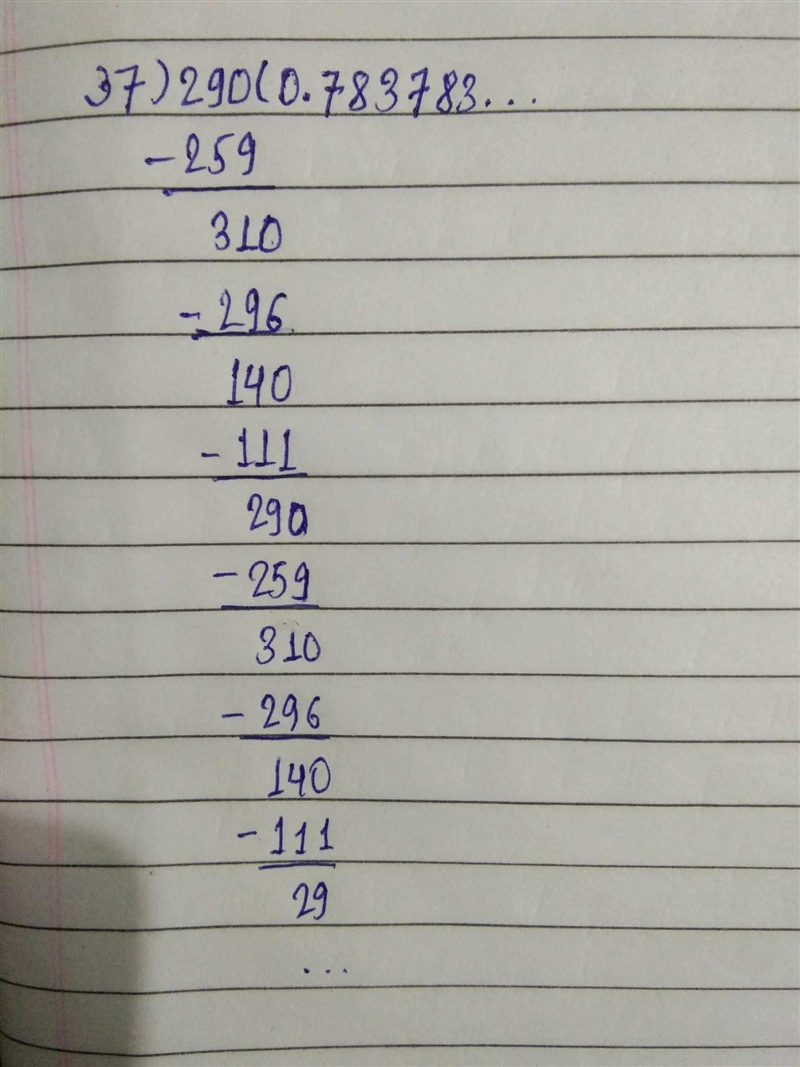 37)290(0.783783...
-259
310
-296
140
-111
290
-259
310
-296
140
-111
29
...